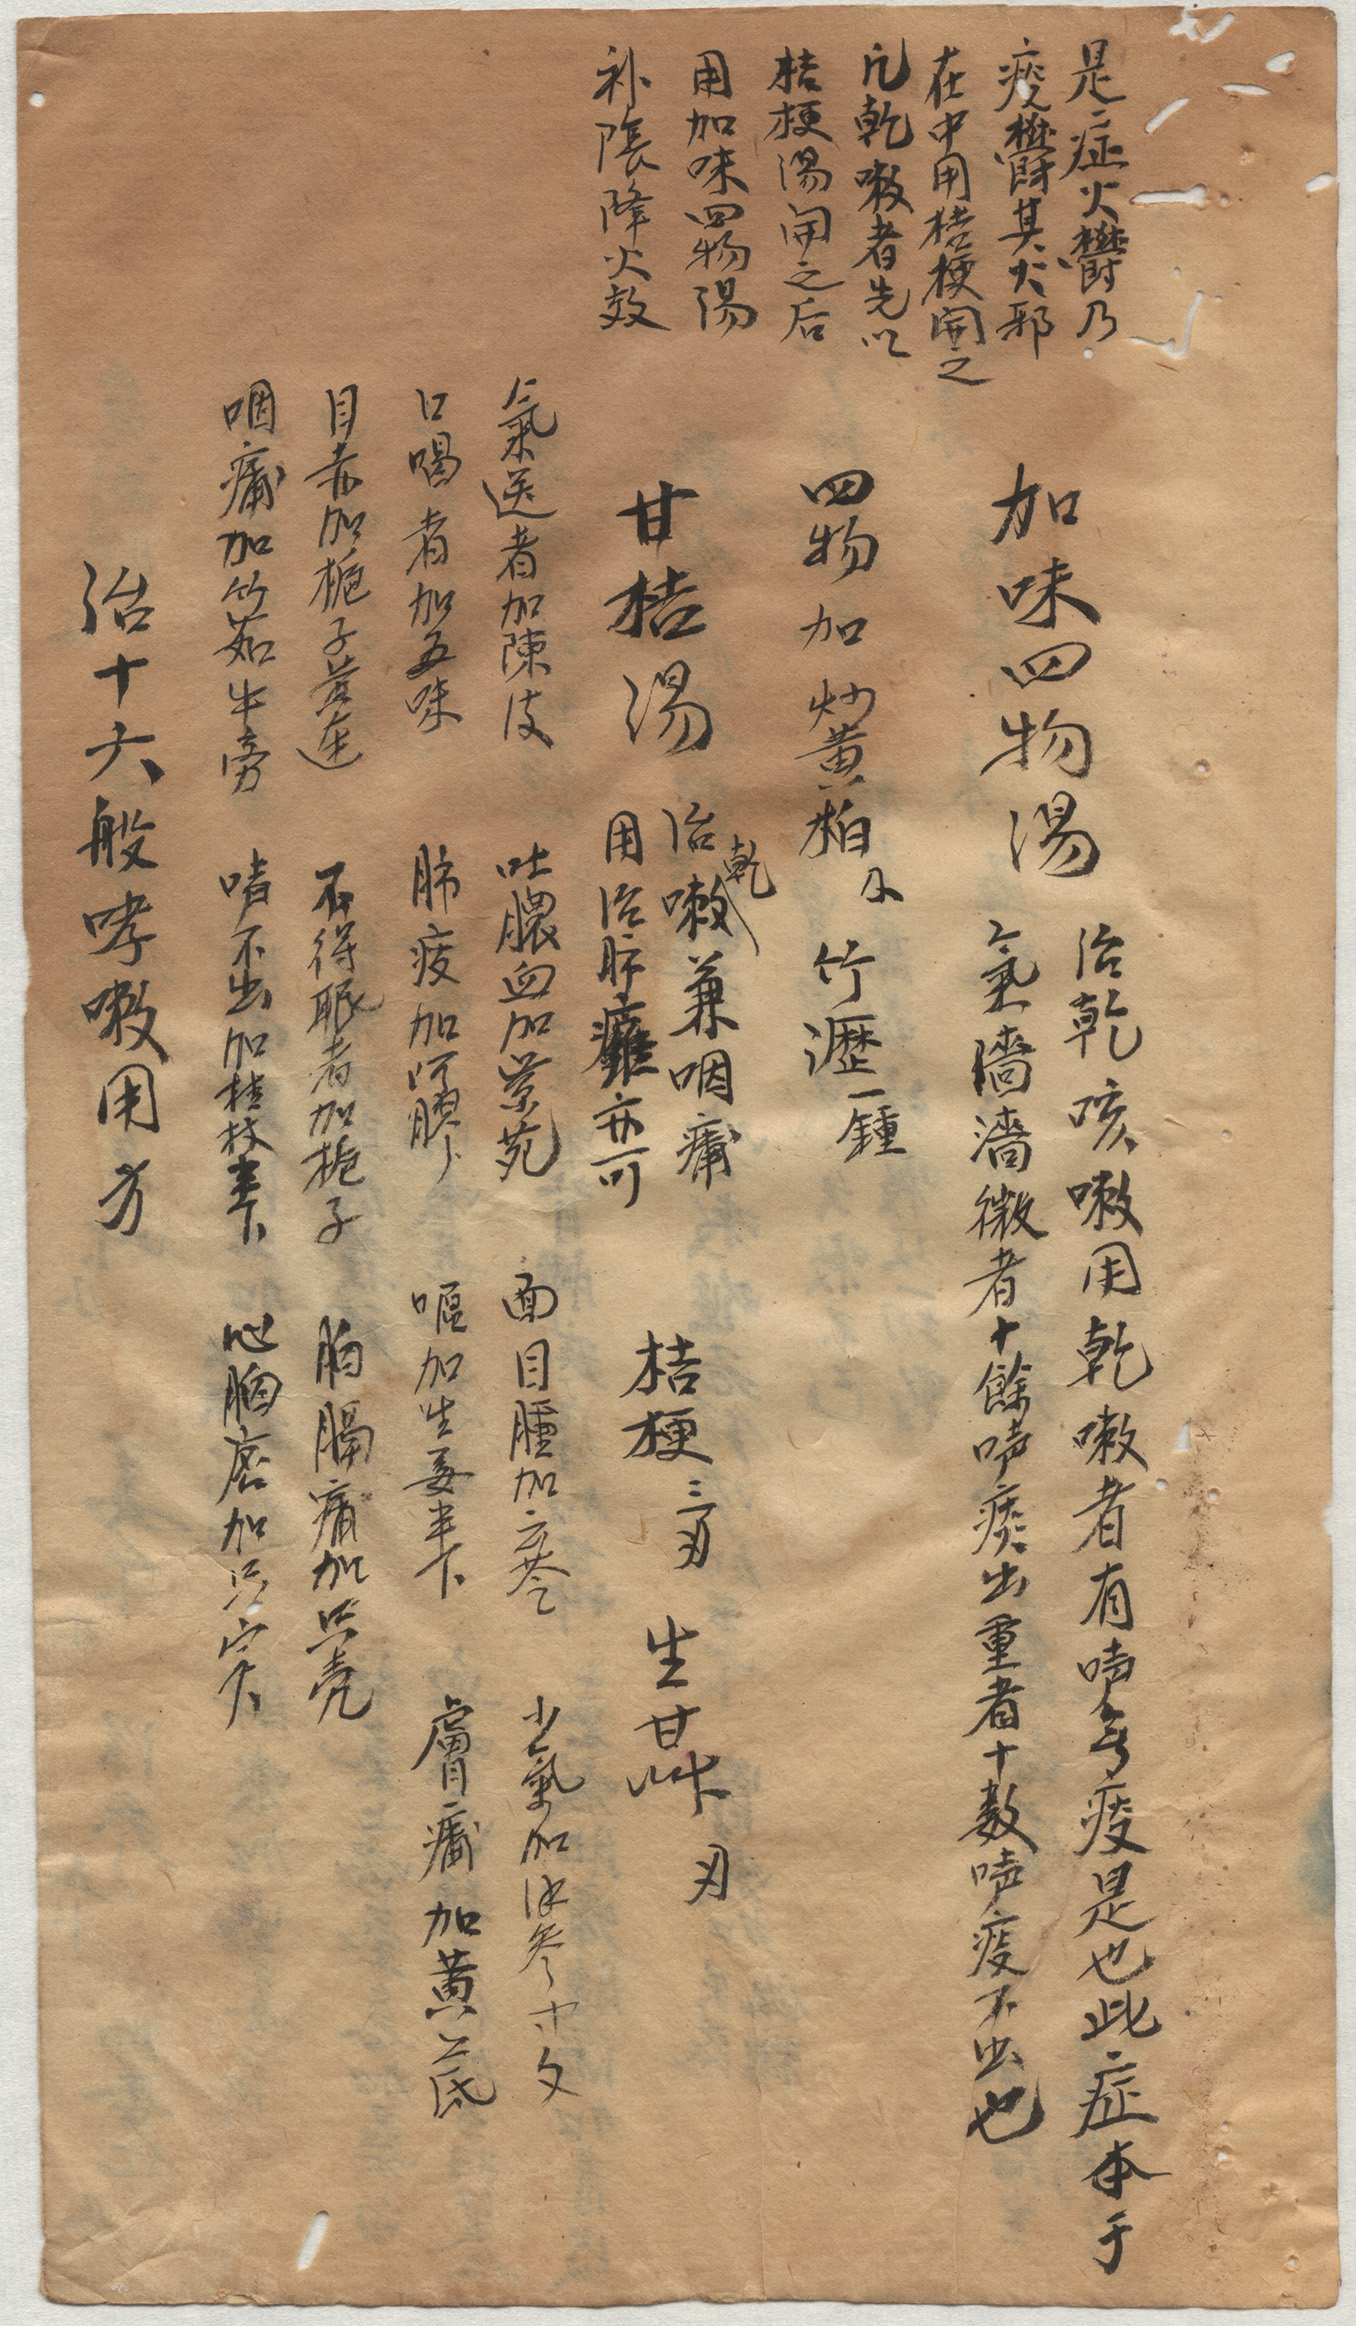 是症火鬱乃
痰鬱其火邪
在中用桔梗開之
凡乾嗽者先以
桔梗湯開之后
用加味四物湯
补陰降火效
加味四物湯
治乾咳嗽用乾嗽者有啨無痰是也此症本于
氣濇濇微者十餘啨痰出重者十数啨痰不出也
四物加炒黄柏 竹瀝一鍾
甘桔湯
治乾嗽兼咽痛
用治肺癰亦可
桔梗三刄 生甘艸刄
氣逆者加陳皮 吐膿血加紫苑 面目腫加 少氣加 参
口喝者加五味 肺痰加阿膠 嘔加生姜半下 膚痛加黄芪
目赤加梔子黄連 不得眠者加梔子 胸膈痛加只壳
咽痛加竹茹牛旁 啨不出加桂枝半下 心胸痞加只实
治十六般哮嗽用方